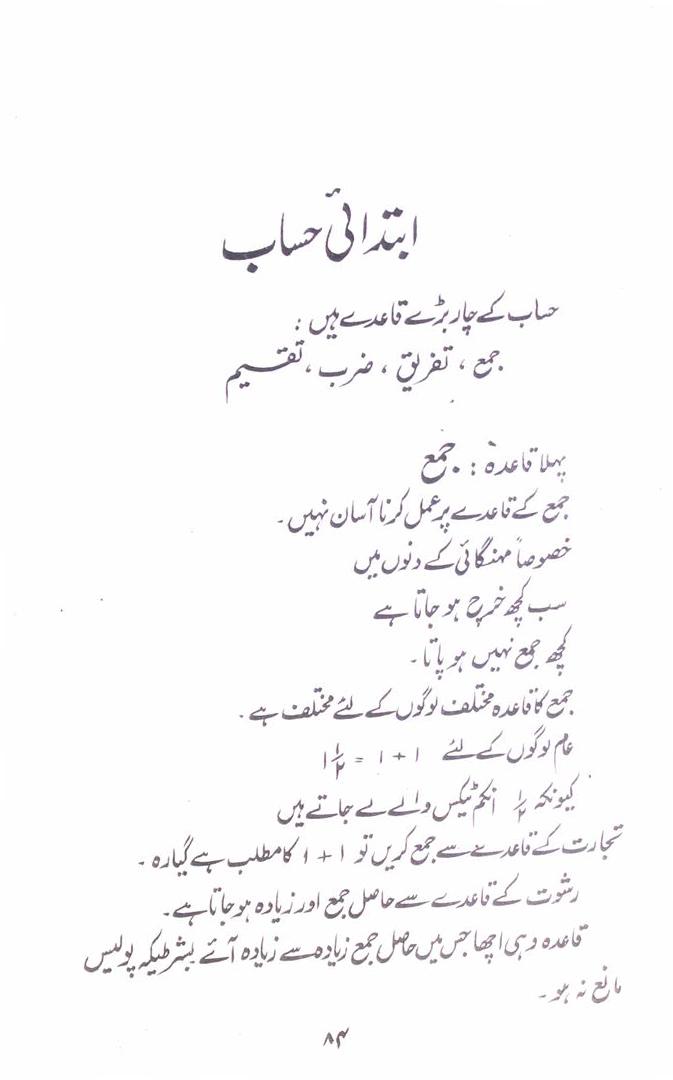 ابتدائی حساب
حساب کے چار بڑے قاعدے ہیں :
جمع ، تفریق ، ضرب ، تقسیم
پہلا قاعدہ : جمع
جمع کے قاعدے پر عمل کرنا آسان نہیں ۔
خصوصاً مہنگائی کے دنوں میں
سب کچھ خرچ ہو جاتا ہے
کچھ جمع نہیں ہو پاتا ۔
جمع کا قاعدہ مختلف لوگوں کے لئے مختلف ہے ۔
عام لوگوں کے لئے ۱ + ۱ = ۱ ۱/۲
کیونکہ ۱/۲ انکم ٹیکس والے لے جاتے ہیں
تجارت کے قاعدے سے جمع کریں تو ۱ + ۱ کا مطلب ہے گیارہ ۔
رشوت کے قاعدے سے حاصل جمع اور زیادہ ہو جاتا ہے ۔
قاعدہ وہی اچھا جس میں حاصل جمع زیادہ سے زیادہ آئے بشرطیکہ پولیس
مانع نہ ہو ۔
۸۴